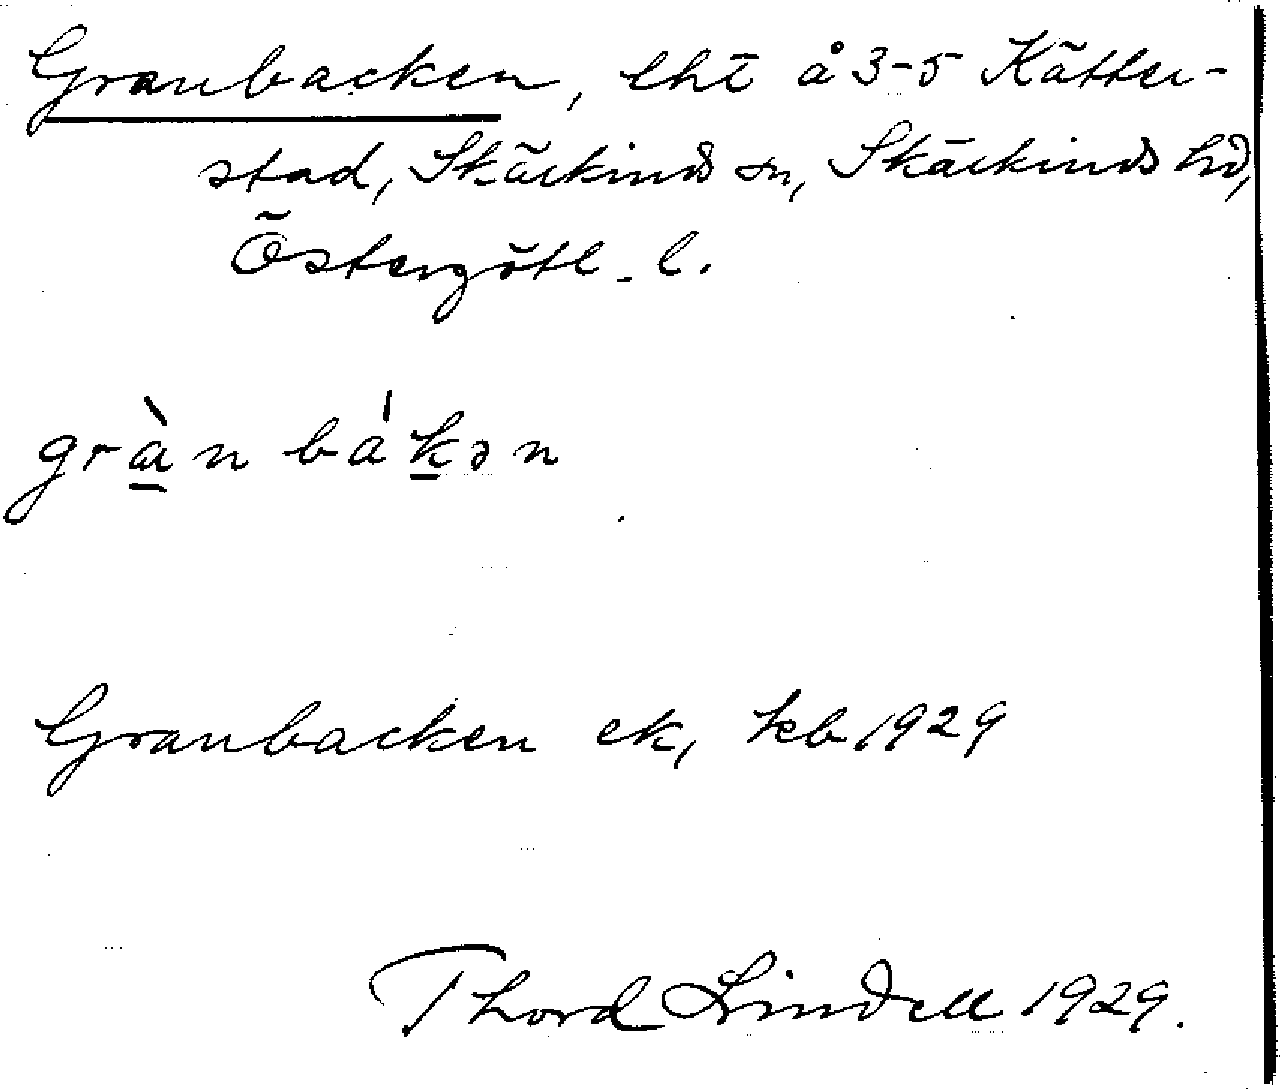 Granbacken, lht å 3-5 Kätter-
stad, Skärkinds sn, Skärkinds hd,
Östergötl. l.
grànbákən
Granbacken ek, kb 1929
Thord Lindell 1929.